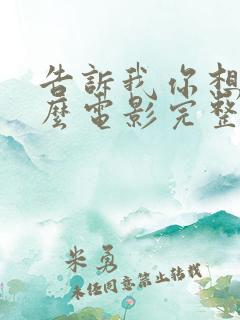 告訴我你想
麼電影完整
米勇
未任同意禁止轉載